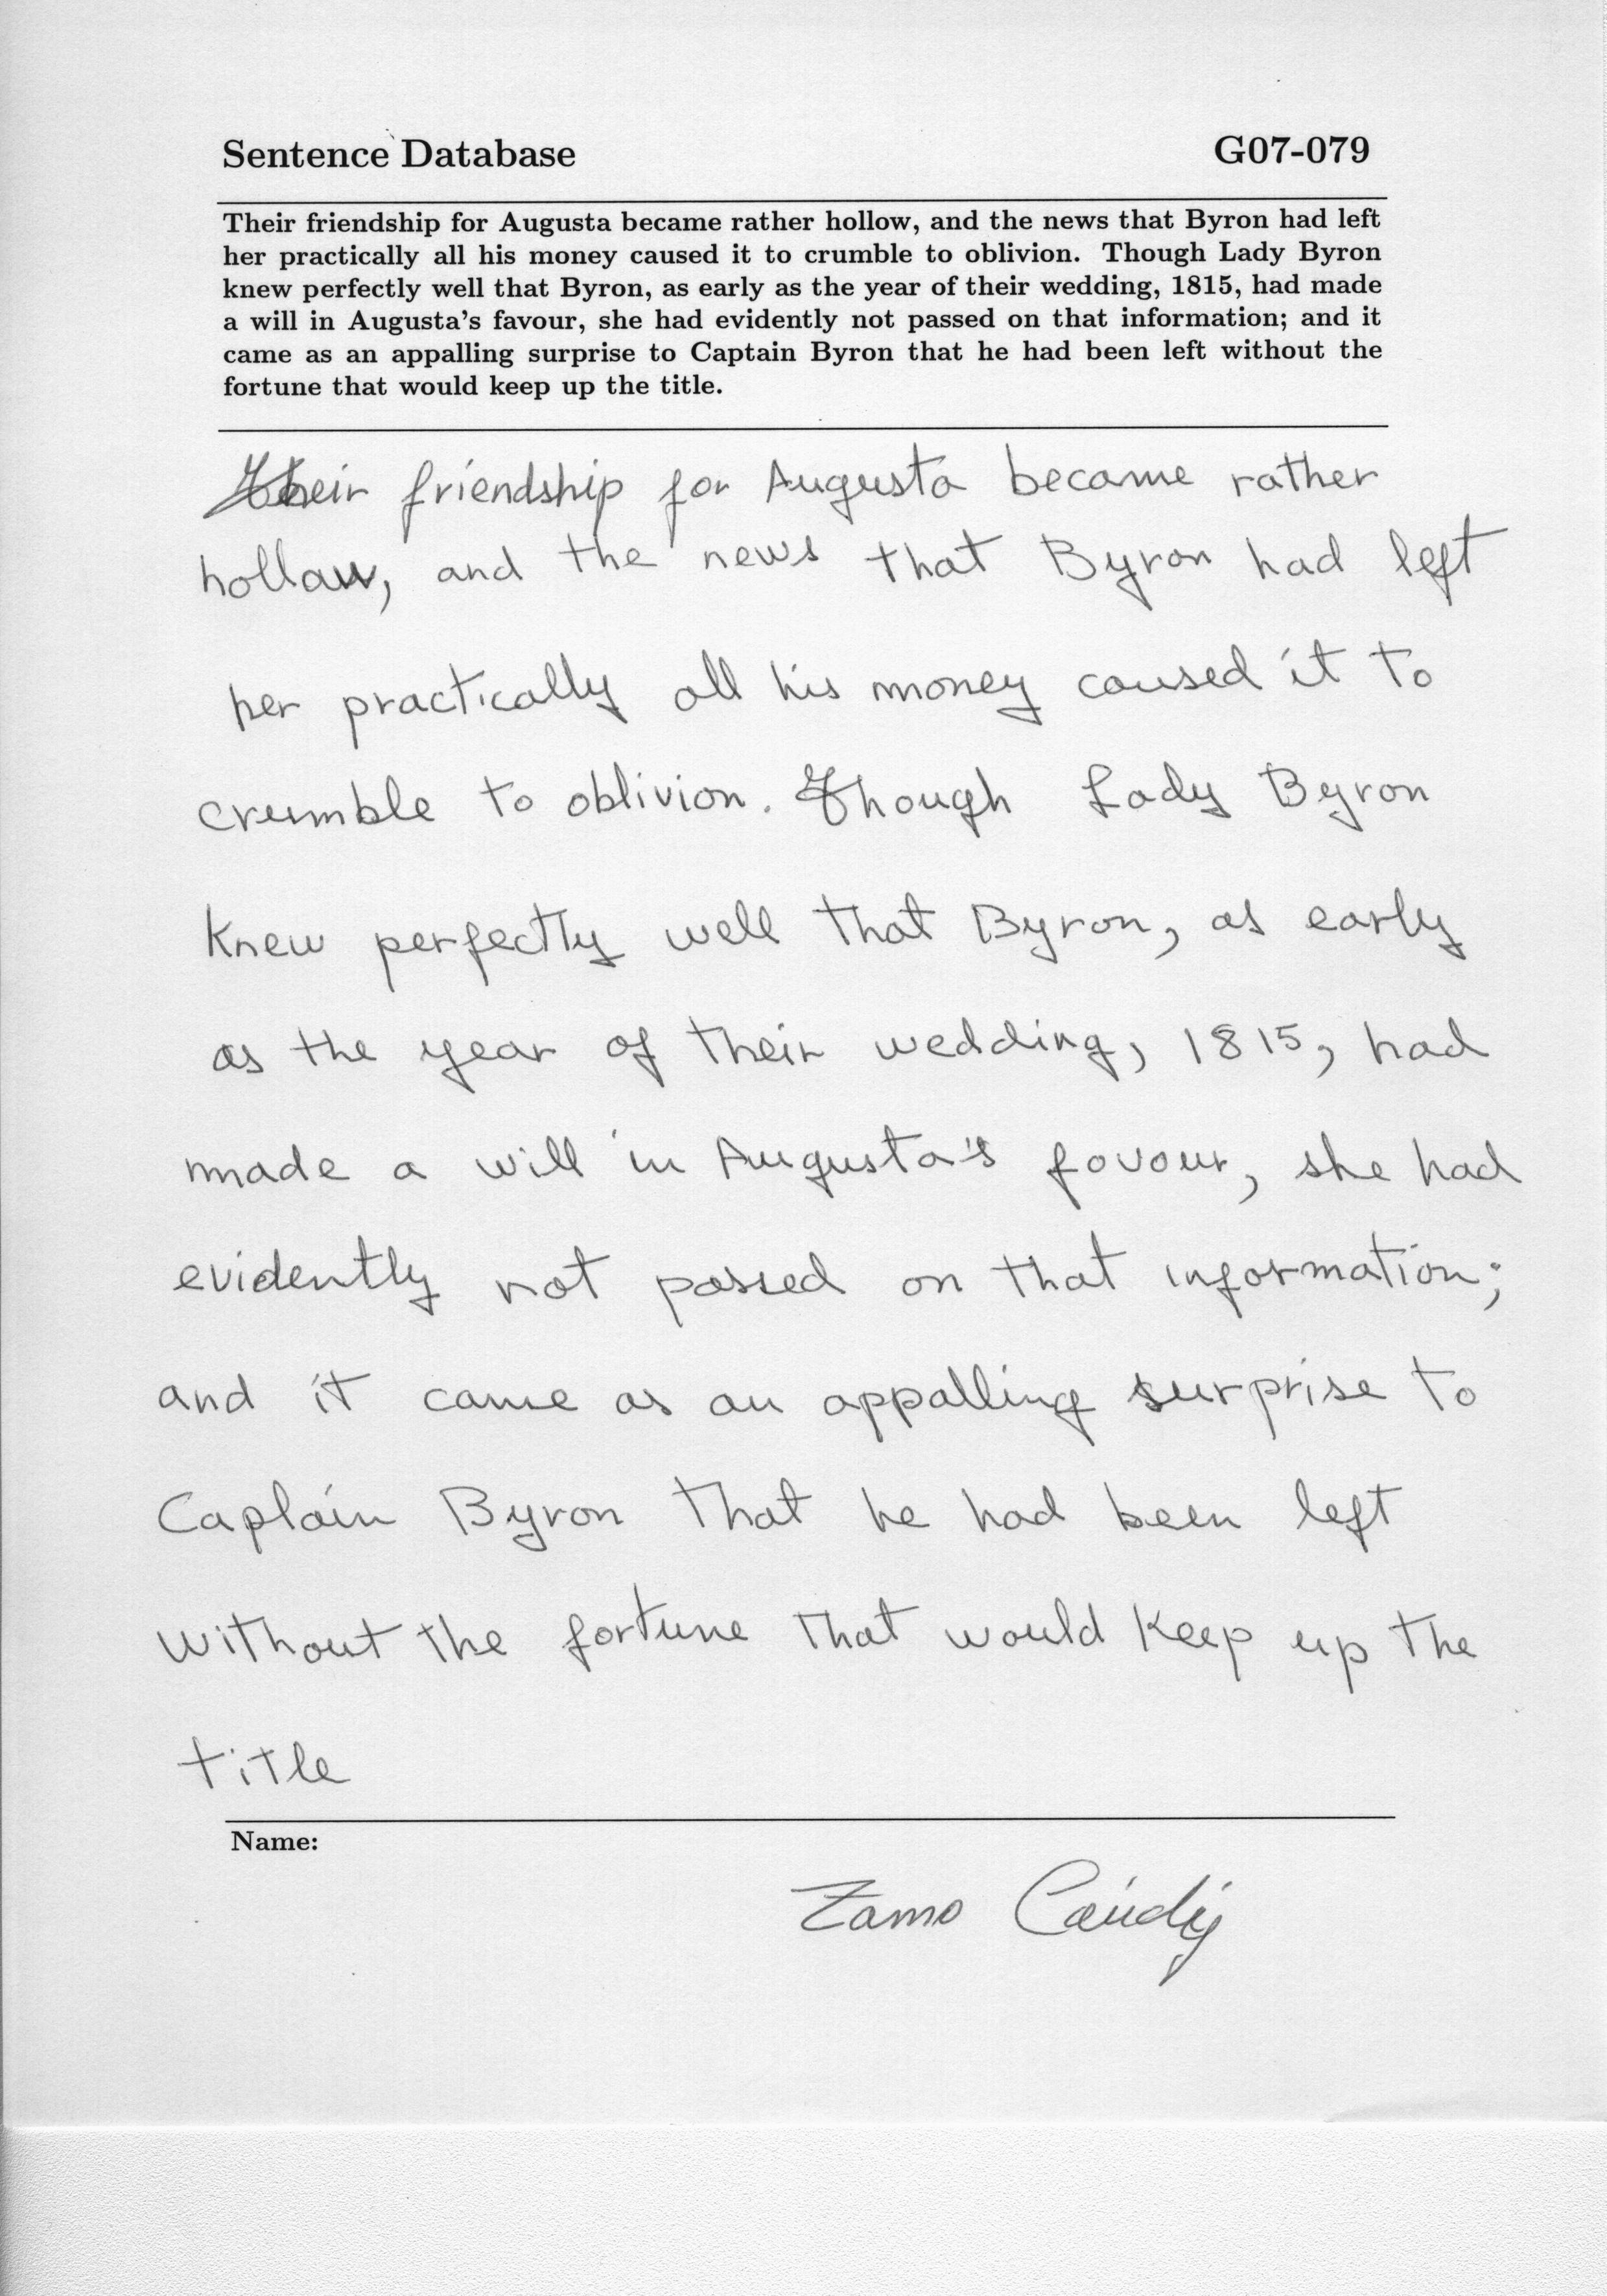 Sentence Database G07-079
Their friendship for Augusta became rather hollow, and the news that Byron had left
her practically all his money caused it to crumble to oblivion. Though Lady Byron
knew perfectly well that Byron, as early as the year of their wedding, 1815, had made
a will in Augusta's favour, she had evidently not passed on that information; and it
came as an appalling surprise to Captain Byron that he had been left without the
fortune that would keep up the title.
Their friendship for Augusta became rather
hollow, and the news that Byron had left
her practically all his money caused it to
crumble to oblivion. Though Lady Byron
knew perfectly well that Byron, as early
as the year of their wedding, 1815, had
made a will in Augusta's favour, she had
evidently not passed on that information;
and it came as an appalling surprise to
Captain Byron that he had been left
without the fortune that would keep up the
title
Name:
Zamo